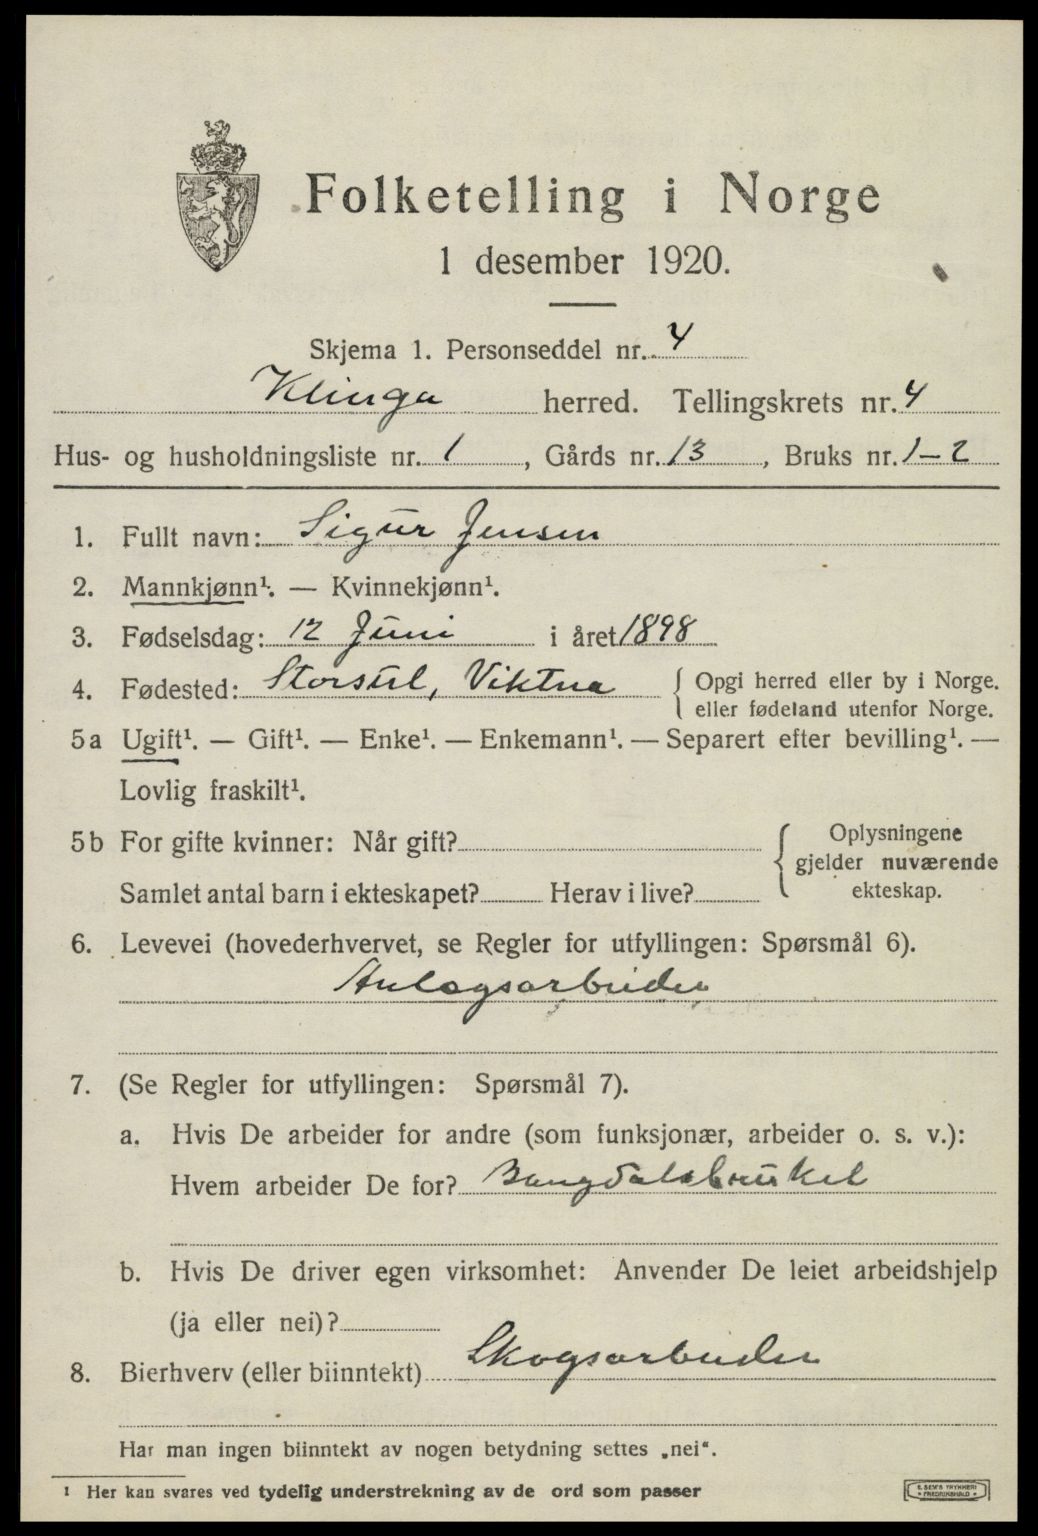 Folketelling i Norge
1 desember 1920.
Skjema 1. Personseddel nr. 4
Klinga herred. Tellingskrets nr. 4
Hus- og husholdningsliste nr. 1, Gårds nr. 13, Bruks nr. 1-2
1. Fullt navn: Sigur Jensen
2. Mannkjønn¹. — Kvinnekjønn¹.
3. Fødselsdag: 12 Juni i året 1898
4. Fødested: Viktna { Opgi herred eller by i Norge.
eller fødeland utenfor Norge.
5a Ugift¹. — Gift¹. — Enke¹. — Enkemann¹. — Separert efter bevilling¹. —
Lovlig fraskilt¹.
5b For gifte kvinner: Når gift?
Samlet antal barn i ekteskapet? Herav i live?
Oplysningene
gjelder nuværende
ekteskap.
6. Levevei (hovederhvervet, se Regler for utfyllingen: Spørsmål 6).
Anlægsarbeider
7. (Se Regler for utfyllingen: Spørsmål 7).
a. Hvis De arbeider for andre (som funksjonær, arbeider o. s. v.):
Hvem arbeider De for? Bangdalsbruket
b. Hvis De driver egen virksomhet: Anvender De leiet arbeidshjelp
(ja eller nei)?
8. Bierhverv (eller biinntekt) Skogsarbeider
Har man ingen biinntekt av nogen betydning settes „nei“.
¹ Her kan svares ved tydelig understrekning av de ord som passer
E. SEM'S TRYKKERI
FREDRIKSHALD